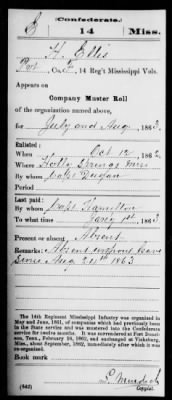 E
(Confederate.)
14 Miss.
H. Ellis
Pvt, Co. E, 14 Reg't Mississippi Vols.
Appears on
Company Muster Roll
of the organization named above,
for July and Aug, 1863.
Enlisted:
When Oct 12, 1862.
Where Holly Springs Miss
By whom Capt
Period
Last paid:
By whom Capt Hamilton
To what time 1st, 1863.
Present or absent Absent
Remarks: Absent without leave
since Aug 24th 1863
The 14th Regiment Mississippi Infantry was organized in
May and June, 1861, of companies which had previously been
in the State service and was mustered into the Confederate
service for twelve months. It was surrendered at Fort Donel-
son, Tenn., February 16, 1862, and exchanged at Vicksburg,
Miss., about September, 1862, immediately after which it was
re-organized.
Book mark
(642)
Copyist.